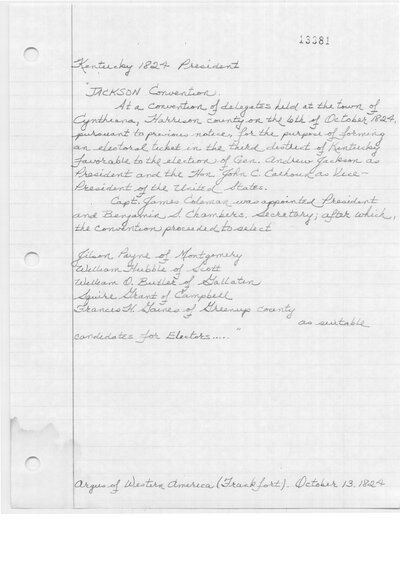 13381
Kentucky 1824 President
"JACKSON Convention.
At a convention of delegates held at the town of
Cynthiana, Harrison county on the 6th of October 1824,
pursuant to previous notice, for the purpose of forming
an electoral ticket in the third district of Kentucky
favorable to the election of Gen. Andrew Jackson as
President and the Hon. John C. Calhoun as Vice-
President of the United States.
Capt. James Coleman was appointed President
and Benjamin S. Chambers, Secretary; after which,
the Convention proceeded to select
Jilson Payne of Montgomery
William Hubble of Scott
William O. Butler of Gallatin
Squire Grant of Campbell
Francis H. Gaines of Greenup county
as suitable
candidates for Electors....."
Argus of Western America (Frankfort). October 13, 1824